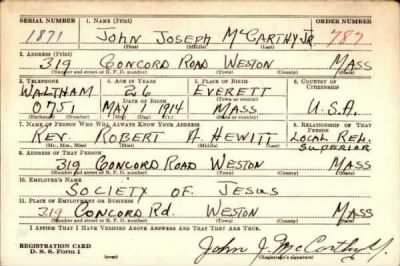 SERIAL NUMBER 1. NAME (Print) ORDER NUMBER
1871 JOHN JOSEPH McCARTHY JR 787
(First) (Middle) (Last)
2. ADDRESS (Print)
319 CONCORD ROAD WESTON MASS
(Number and street or R. F. D. number) (Town) (County) (State)
3. TELEPHONE 4. AGE IN YEARS 5. PLACE OF BIRTH 6. COUNTRY OF CITIZENSHIP
WALTHAM 26 EVERETT
DATE OF BIRTH (Town or county)
0751 MAY 1914 MASS U.S.A.
(Exchange) (Number) (Mo.) (Day) (Yr.) (State or country)
7. NAME OF PERSON WHO WILL ALWAYS KNOW YOUR ADDRESS 8. RELATIONSHIP OF THAT PERSON
REV. ROBERT A. HEWITT LOCAL REL. SUPERIOR
(Mr., Mrs., Miss) (First) (Middle) (Last)
9. ADDRESS OF THAT PERSON
319 CONCORD ROAD WESTON MASS
(Number and street or R. F. D. number) (Town) (County) (State)
10. EMPLOYER'S NAME
SOCIETY OF JESUS
11. PLACE OF EMPLOYMENT OR BUSINESS
319 CONCORD Rd. WESTON MASS
(Number and street or R. F. D. number) (Town) (County) (State)
I AFFIRM THAT I HAVE VERIFIED ABOVE ANSWERS AND THAT THEY ARE TRUE.
REGISTRATION CARD
D. S. S. Form 1
John J. McCarthy Jr.
(Registrant's signature)